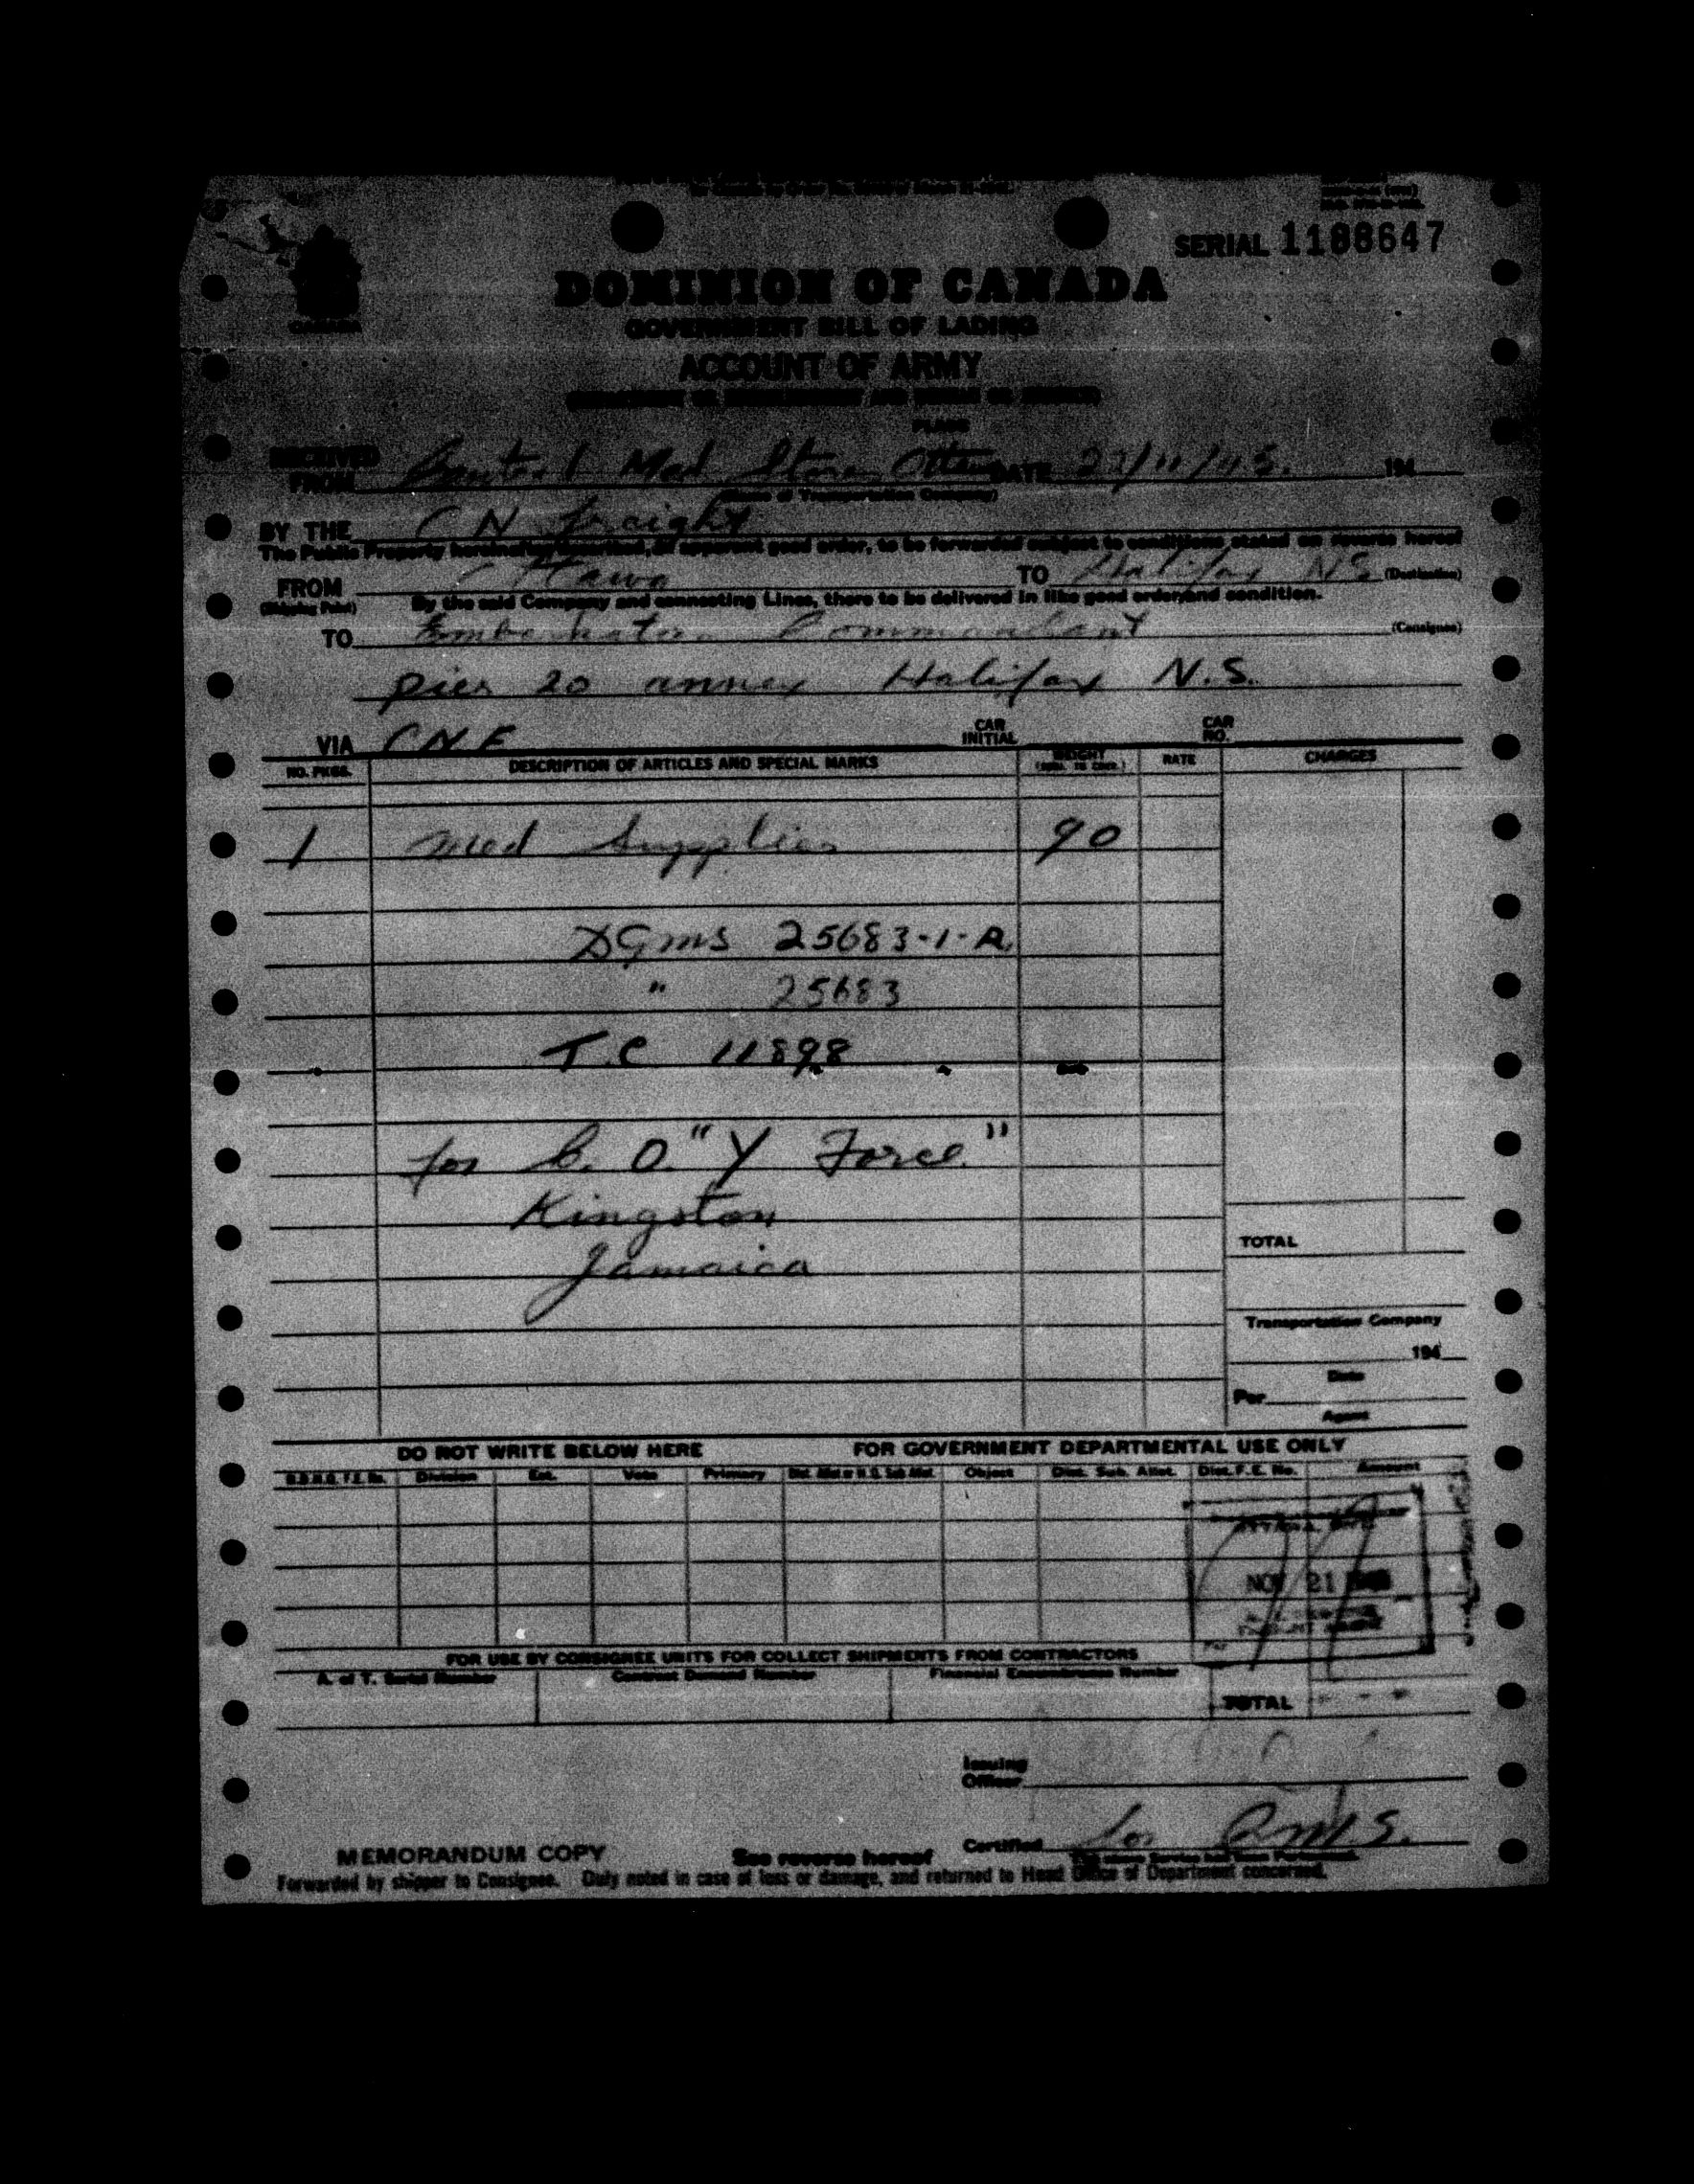 SERIAL 1188647
CANADA
DOMINION OF CANADA
GOVERNMENT BILL OF LADING
ACCOUNT OF ARMY
PLACE
RECEIVED FROM Central Med Stores Ottawa DATE 194
(Name of Transportation Company)
BY THE CN Freight
The Public Property hereinafter described, in apparent good order, to be forwarded subject to conditions stated on reverse hereof
FROM Ottawa TO Halifax N.S. (Destination)
(Shipping Point) By the said Company and connecting Lines, there to be delivered in like good order and condition.
TO Embarkation Commandant (Consignee)
pier 20 annex Halifax N.S.
VIA CNF CAR INITIAL CAR NO.
NO. PKGS. DESCRIPTION OF ARTICLES AND SPECIAL MARKS WEIGHT RATE CHARGES
1 Med Supplies 90
DGMS 25683-1-R
" 25683
T.C 11898
for C. O. "Y Force"
Kingston
Jamaica
TOTAL
Transportation Company
194
Date
Per
Agent
DO NOT WRITE BELOW HERE FOR GOVERNMENT DEPARTMENTAL USE ONLY
Division Est. Vote Primary Object Dist. Sub. Allot. Dist. F.E. No. Amount
NOV 21
FOR USE BY CONSIGNEE UNITS FOR COLLECT SHIPMENTS FROM CONTRACTORS
A. of T. Serial Number Contract Demand Number Financial Encumbrance Number
TOTAL
Issuing Officer
Certified for
The above Service has been Performed.
MEMORANDUM COPY See reverse hereof
Forwarded by shipper to Consignee. Duly noted in case of loss or damage, and returned to Head Office of Department concerned.